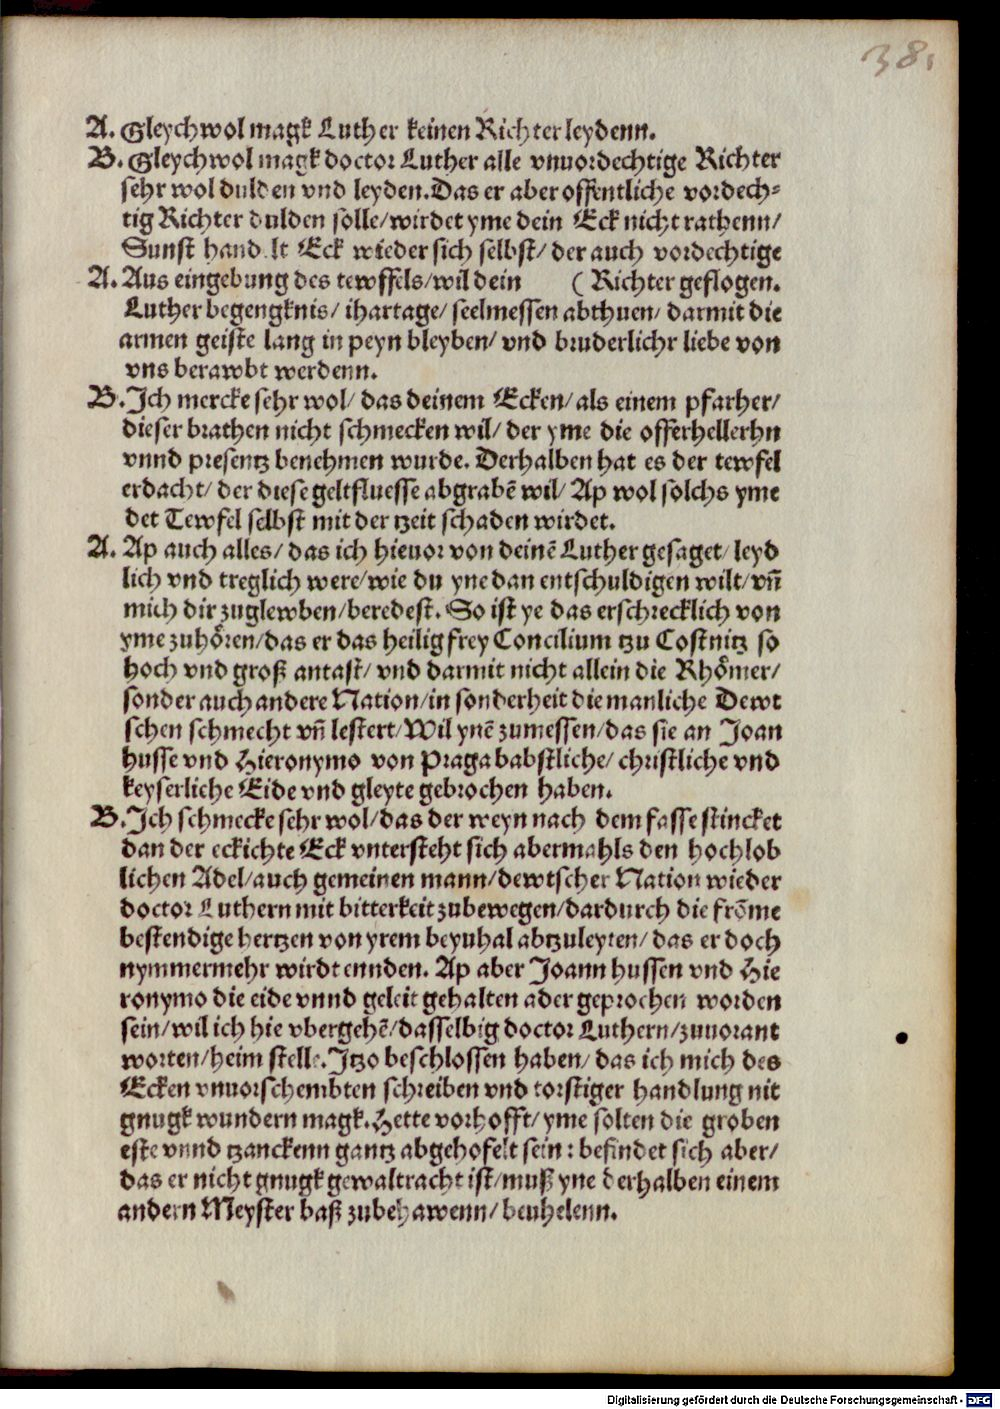 38,
A. Gleychwol magk Luther keinen Richter leydenn.
B. Gleychwol magk doctor Luther alle vnuordechtige Richter
sehr wol dulden vnd leyden. Das er aber offentliche vordech⸗
tig Richter dulden solle/ wirdet yme dein Eck nicht rathenn/
Sunst hand lt Eck wieder sich selbst/ der auch vordechtige
A. Aus eingebung des tewffels/ wil dein ( Richter geflogen.
Luther begengknis/ ihartage/ seelmessen abthuen/ darmit die
armen geiste lang in peyn bleyben/ vnd bruderlichr liebe von
vns berawbt werdenn.
B. Ich mercke sehr wol/ das deinem Ecken/ als einem pfarher/
dieser brathen nicht schmecken wil/ der yme die offerhellerhn
vnnd presentz benehmen wurde. Derhalben hat es der tewfel
erdacht/ der diese geltfluesse abgrabē wil/ Ap wol solchs yme
det Tewfel selbst mit der tzeit schaden wirdet.
A. Ap auch alles/ das ich hieuor von deinē Luther gesaget/ leyd
lich vnd treglich were/ wie du yne dan entschuldigen wilt/ vn̄
mich dir zuglewben/ beredest. So ist ye das erschrecklich von
yme zuhören/ das er das heilig frey Concilium tzu Costnitz so
hoch vnd groß antast/ vnd darmit nicht allein die Rhömer/
sonder auch andere Nation/ in sonderheit die manliche Dewt
schen schmecht vn̄ lestert/ Wil ynē zumessen/ das sie an Joan
husse vnd Hieronymo von Praga babstliche/ christliche vnd
keyserliche Eide vnd gleyte gebrochen haben.
B. Ich schmecke sehr wol/ das der weyn nach dem fasse stincket
dan der eckichte Eck vntersteht sich abermahls den hochlob
lichen Adel/ auch gemeinen mann/ dewtscher Nation wieder
doctor Luthern mit bitterkeit zubewegen/ dardurch die frōme
bestendige hertzen von yrem beyuhal abtzuleyten/ das er doch
nymmermehr wirdt ennden. Ap aber Joann hussen vnd Hie
ronymo die eide vnnd geleit gehalten ader geprochen worden
sein/ wil ich hie vbergehē/ dasselbig doctor Luthern/ zuuorant
worten/ heim stelle. Itzo beschlossen haben/ das ich mich des
Ecken vnuorschembten schreiben vnd torstiger handlung nit
gnugk wundern magk. Hette vorhofft/ yme solten die groben
este vnnd tzanckenn gantz abgehofelt sein: befindet sich aber/
das er nicht gnugk gewaltracht ist/ muß yne derhalben einem
andern Meyster baß zubehawenn/ beuhelenn.
Digitalisierung gefördert durch die Deutsche Forschungsgemeinschaft - DFG